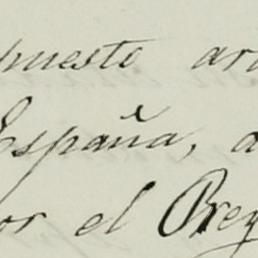 puesto ar
España, a
or el Reg